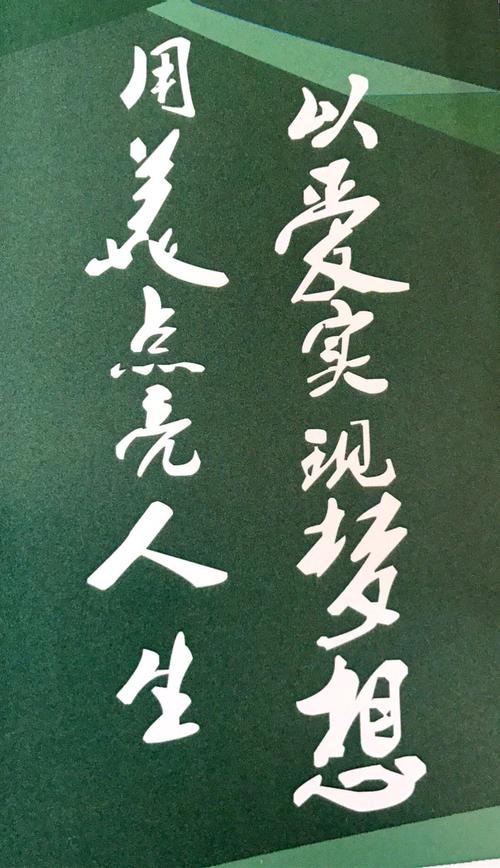 以爱实现梦想
用美点亮人生